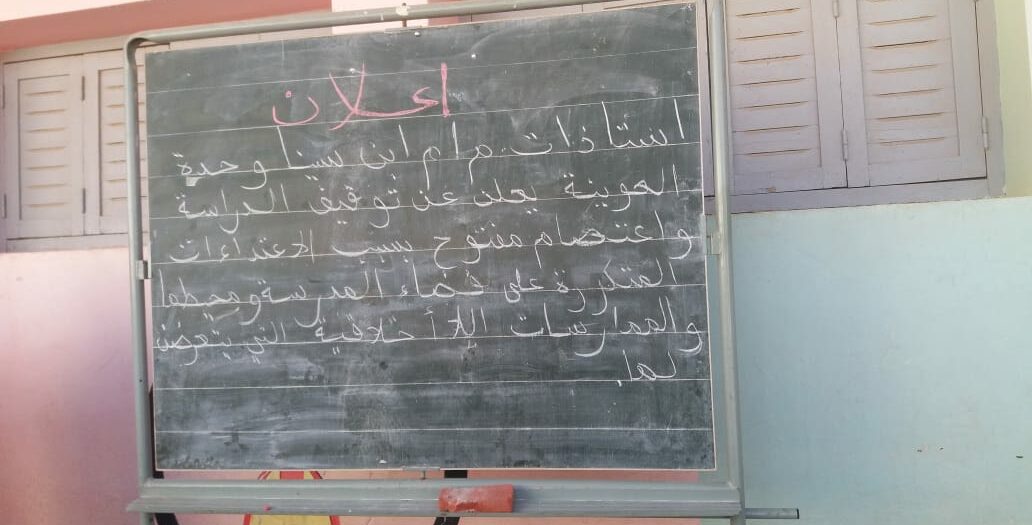 اعلان
استاذات م ام ابن سينا وحدة
العوينة يعلن عن توقيف الدراسة
واعتصام مفتوح بسبب الاعتداءات
المتكررة على فضاء المدرسة ومحيطها
والممارسات اللاأخلاقية التي يتعرضن
لها.